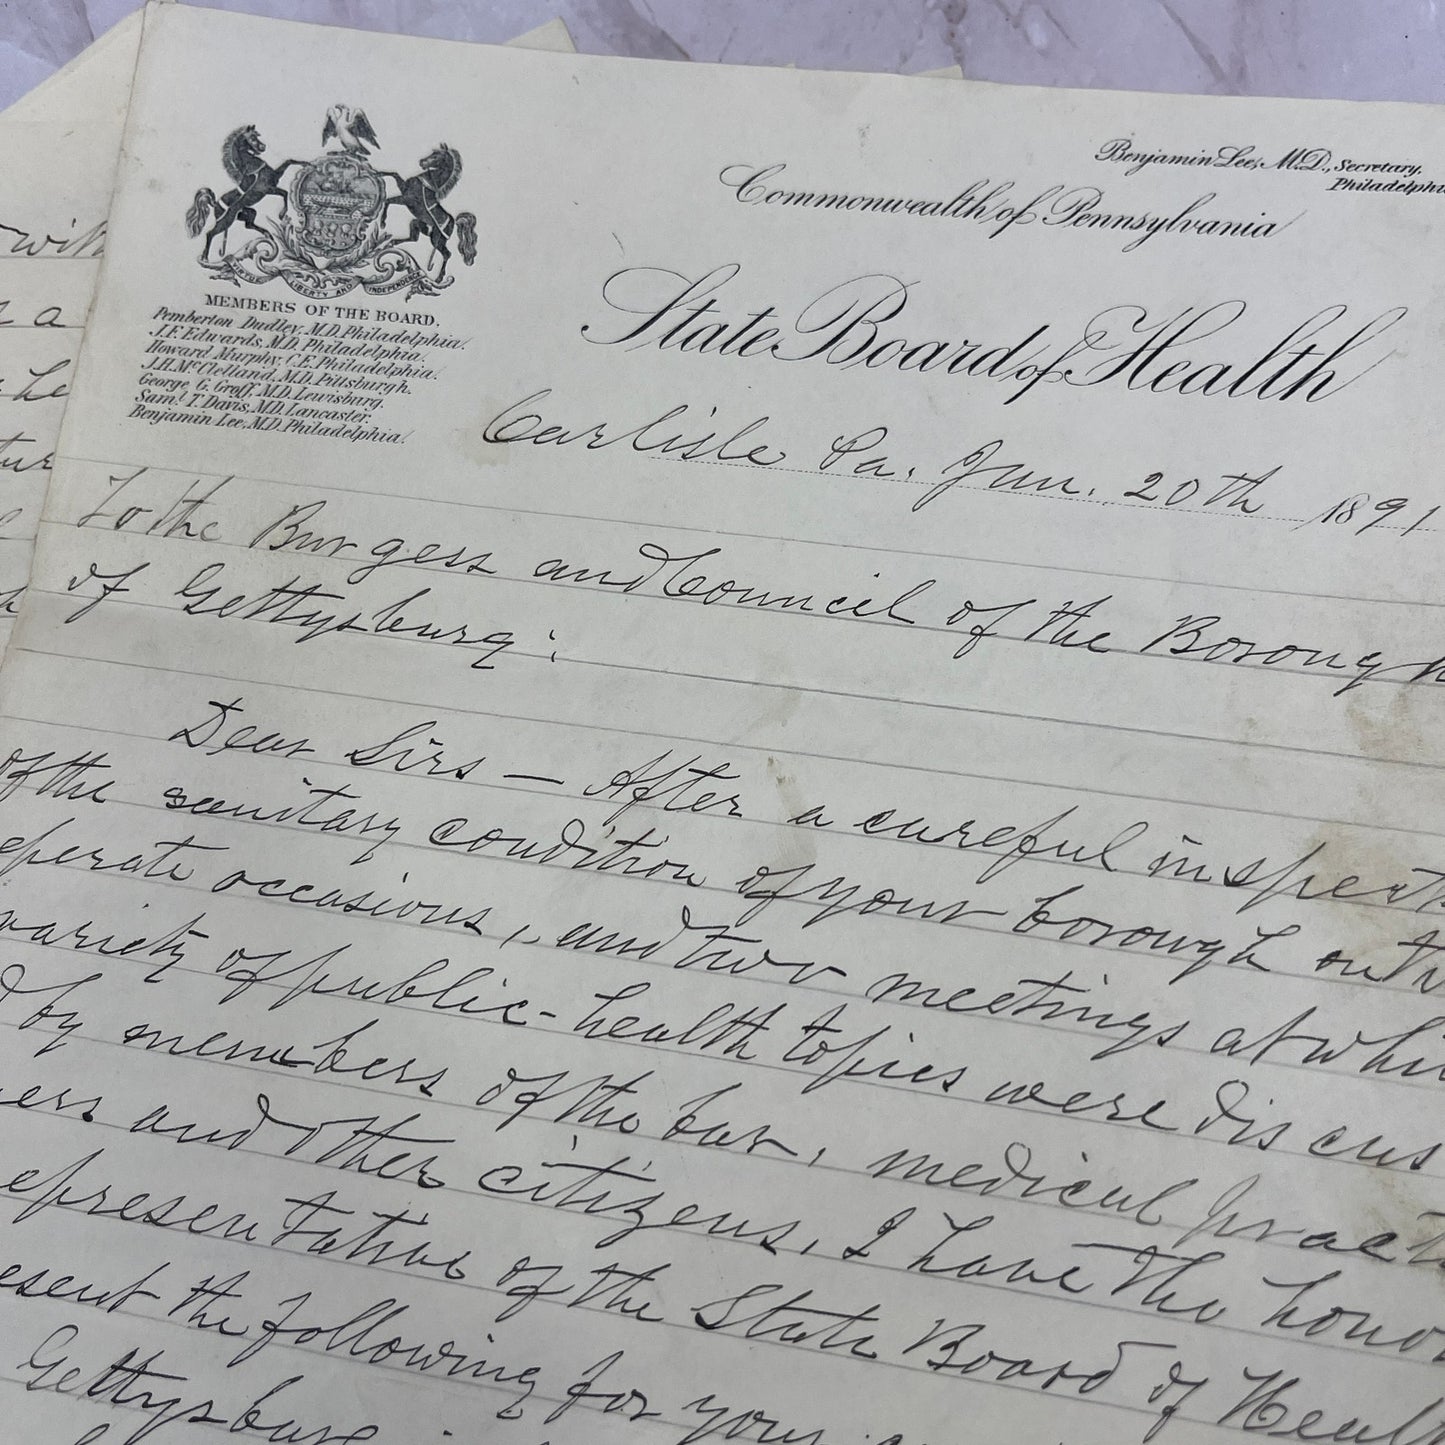 Benjamin Lee, M.D., Secretary.
Philadelphi
Commonwealth of Pennsylvania
State Board of Health
VIRTUE LIBERTY AND INDEPENDENCE
MEMBERS OF THE BOARD.
Pemberton Dudley, M.D. Philadelphia.
J.F. Edwards, M.D. Philadelphia.
Howard Murphy, C.E. Philadelphia.
J.H. McClelland, M.D. Pittsburgh.
George G. Groff, M.D. Lewisburg.
Saml. T. Davis, M.D. Lancaster.
Benjamin Lee, M.D. Philadelphia.
Carlisle Pa. Jan. 20th 1891
To the Burgess and Council of the Borough
of Gettysburg:
Dear Sirs — After a careful inspect
of the sanitary condition of your borough on tw
eperate occasions, and two meetings at whi
variety of public-health topics were discus
d by members of the bar, medical pract
ers and other citizens, I have the honor
epresentative of the State Board of Healt
esent the following for your
Gettysburg
with
a
he
tur